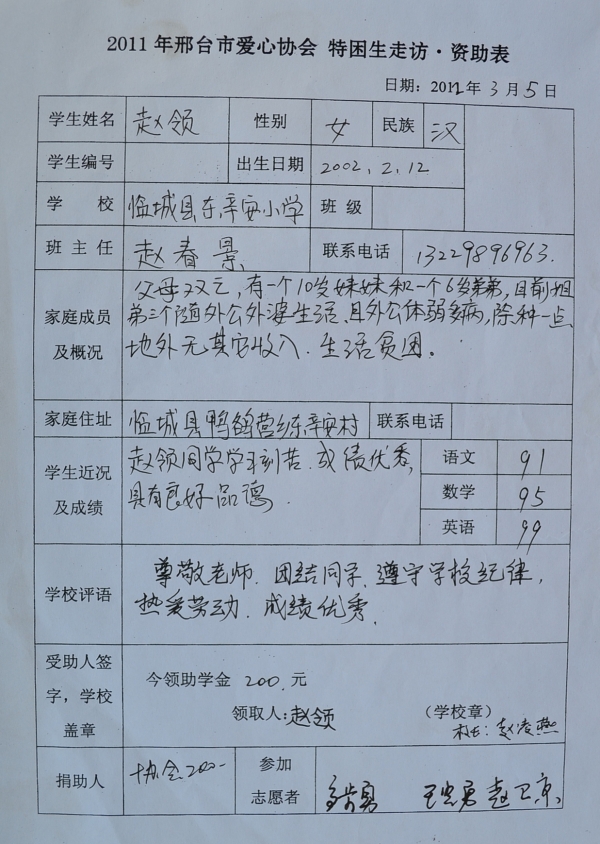 2011年邢台市爱心协会 特困生走访·资助表
日期: 2012年3月5日
学生姓名 赵领 性别 女 民族 汉
学生编号 出生日期 2002.2.12
学 校 临城县东辛安小学 班 级
班 主 任 赵春景 联系电话 13229896963.
家庭成员及概况
父母双亡,有一个10岁妹妹和一个6岁弟弟,目前姐
弟三个随外公外婆生活.且外公体弱多病,除种一点
地外无其它收入.生活贫困。
家庭住址 临城县鸭鸽营乡东辛安村 联系电话
学生近况及成绩
赵领同学学习刻苦.成绩优秀,
具有良好品德.
语文 91
数学 95
英语 99
学校评语
尊敬老师.团结同学.遵守学校纪律,
热爱劳动.成绩优秀.
受助人签字,学校盖章
今领助学金 200.元
领取人:赵领 (学校章)
校长:赵凌燕
捐助人 协会200- 参加志愿者 赵卫京